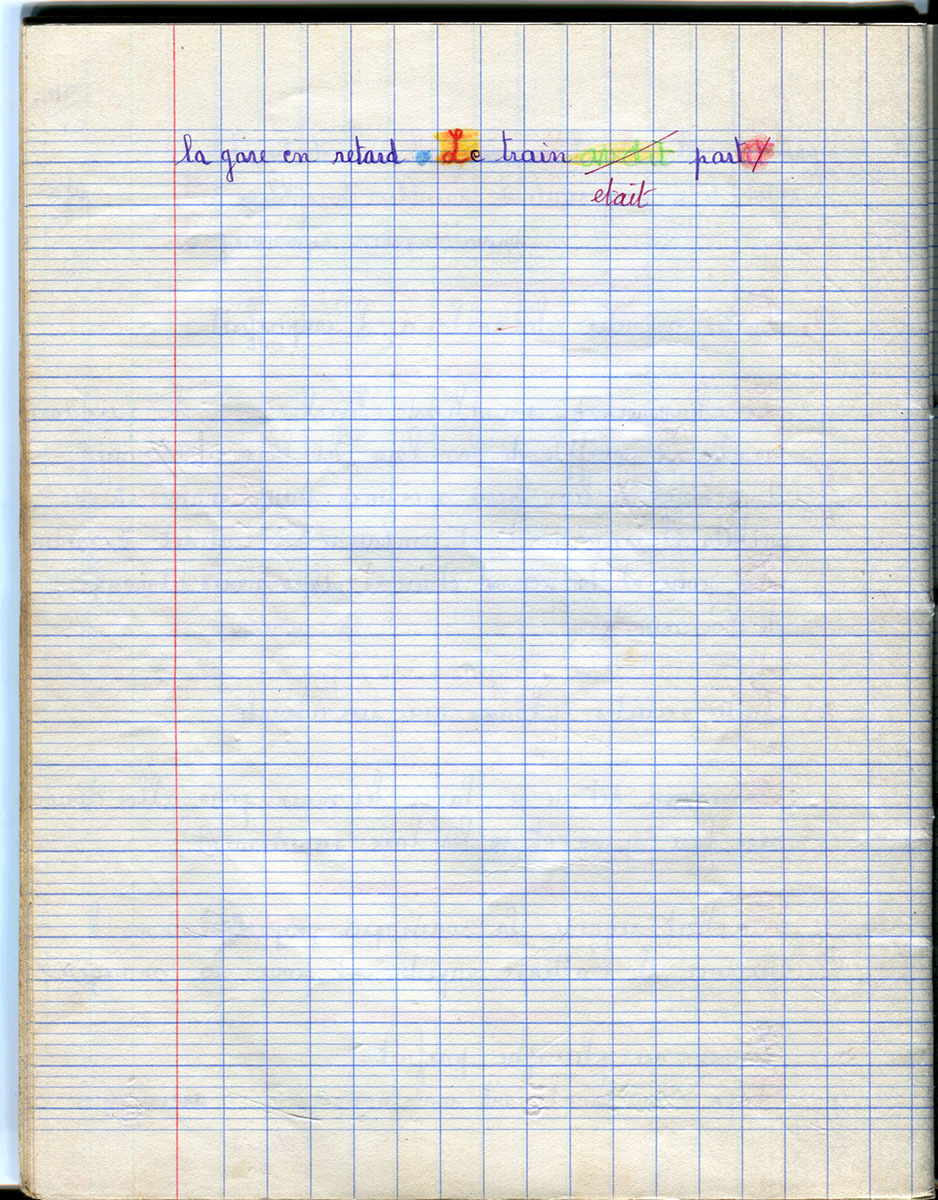 la gare en retard. Le train avait parti
etait